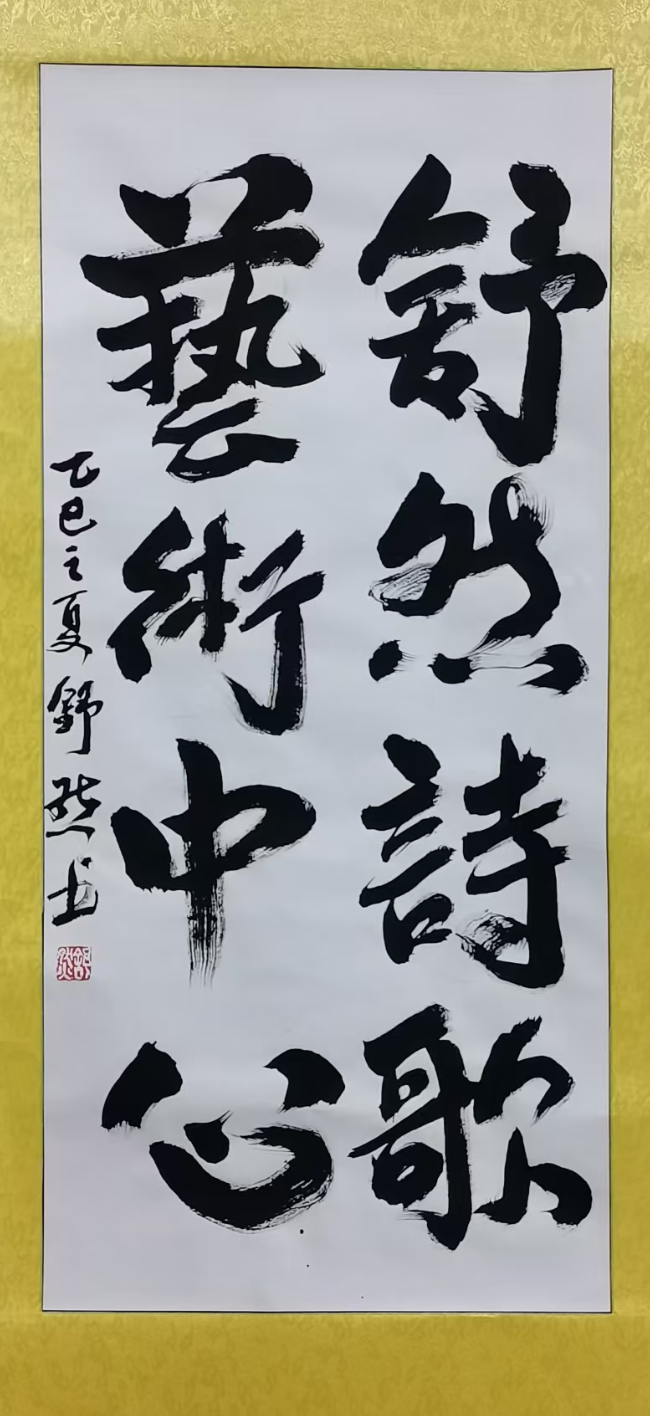 舒然詩歌
藝術中心
乙巳之夏舒然书
舒然